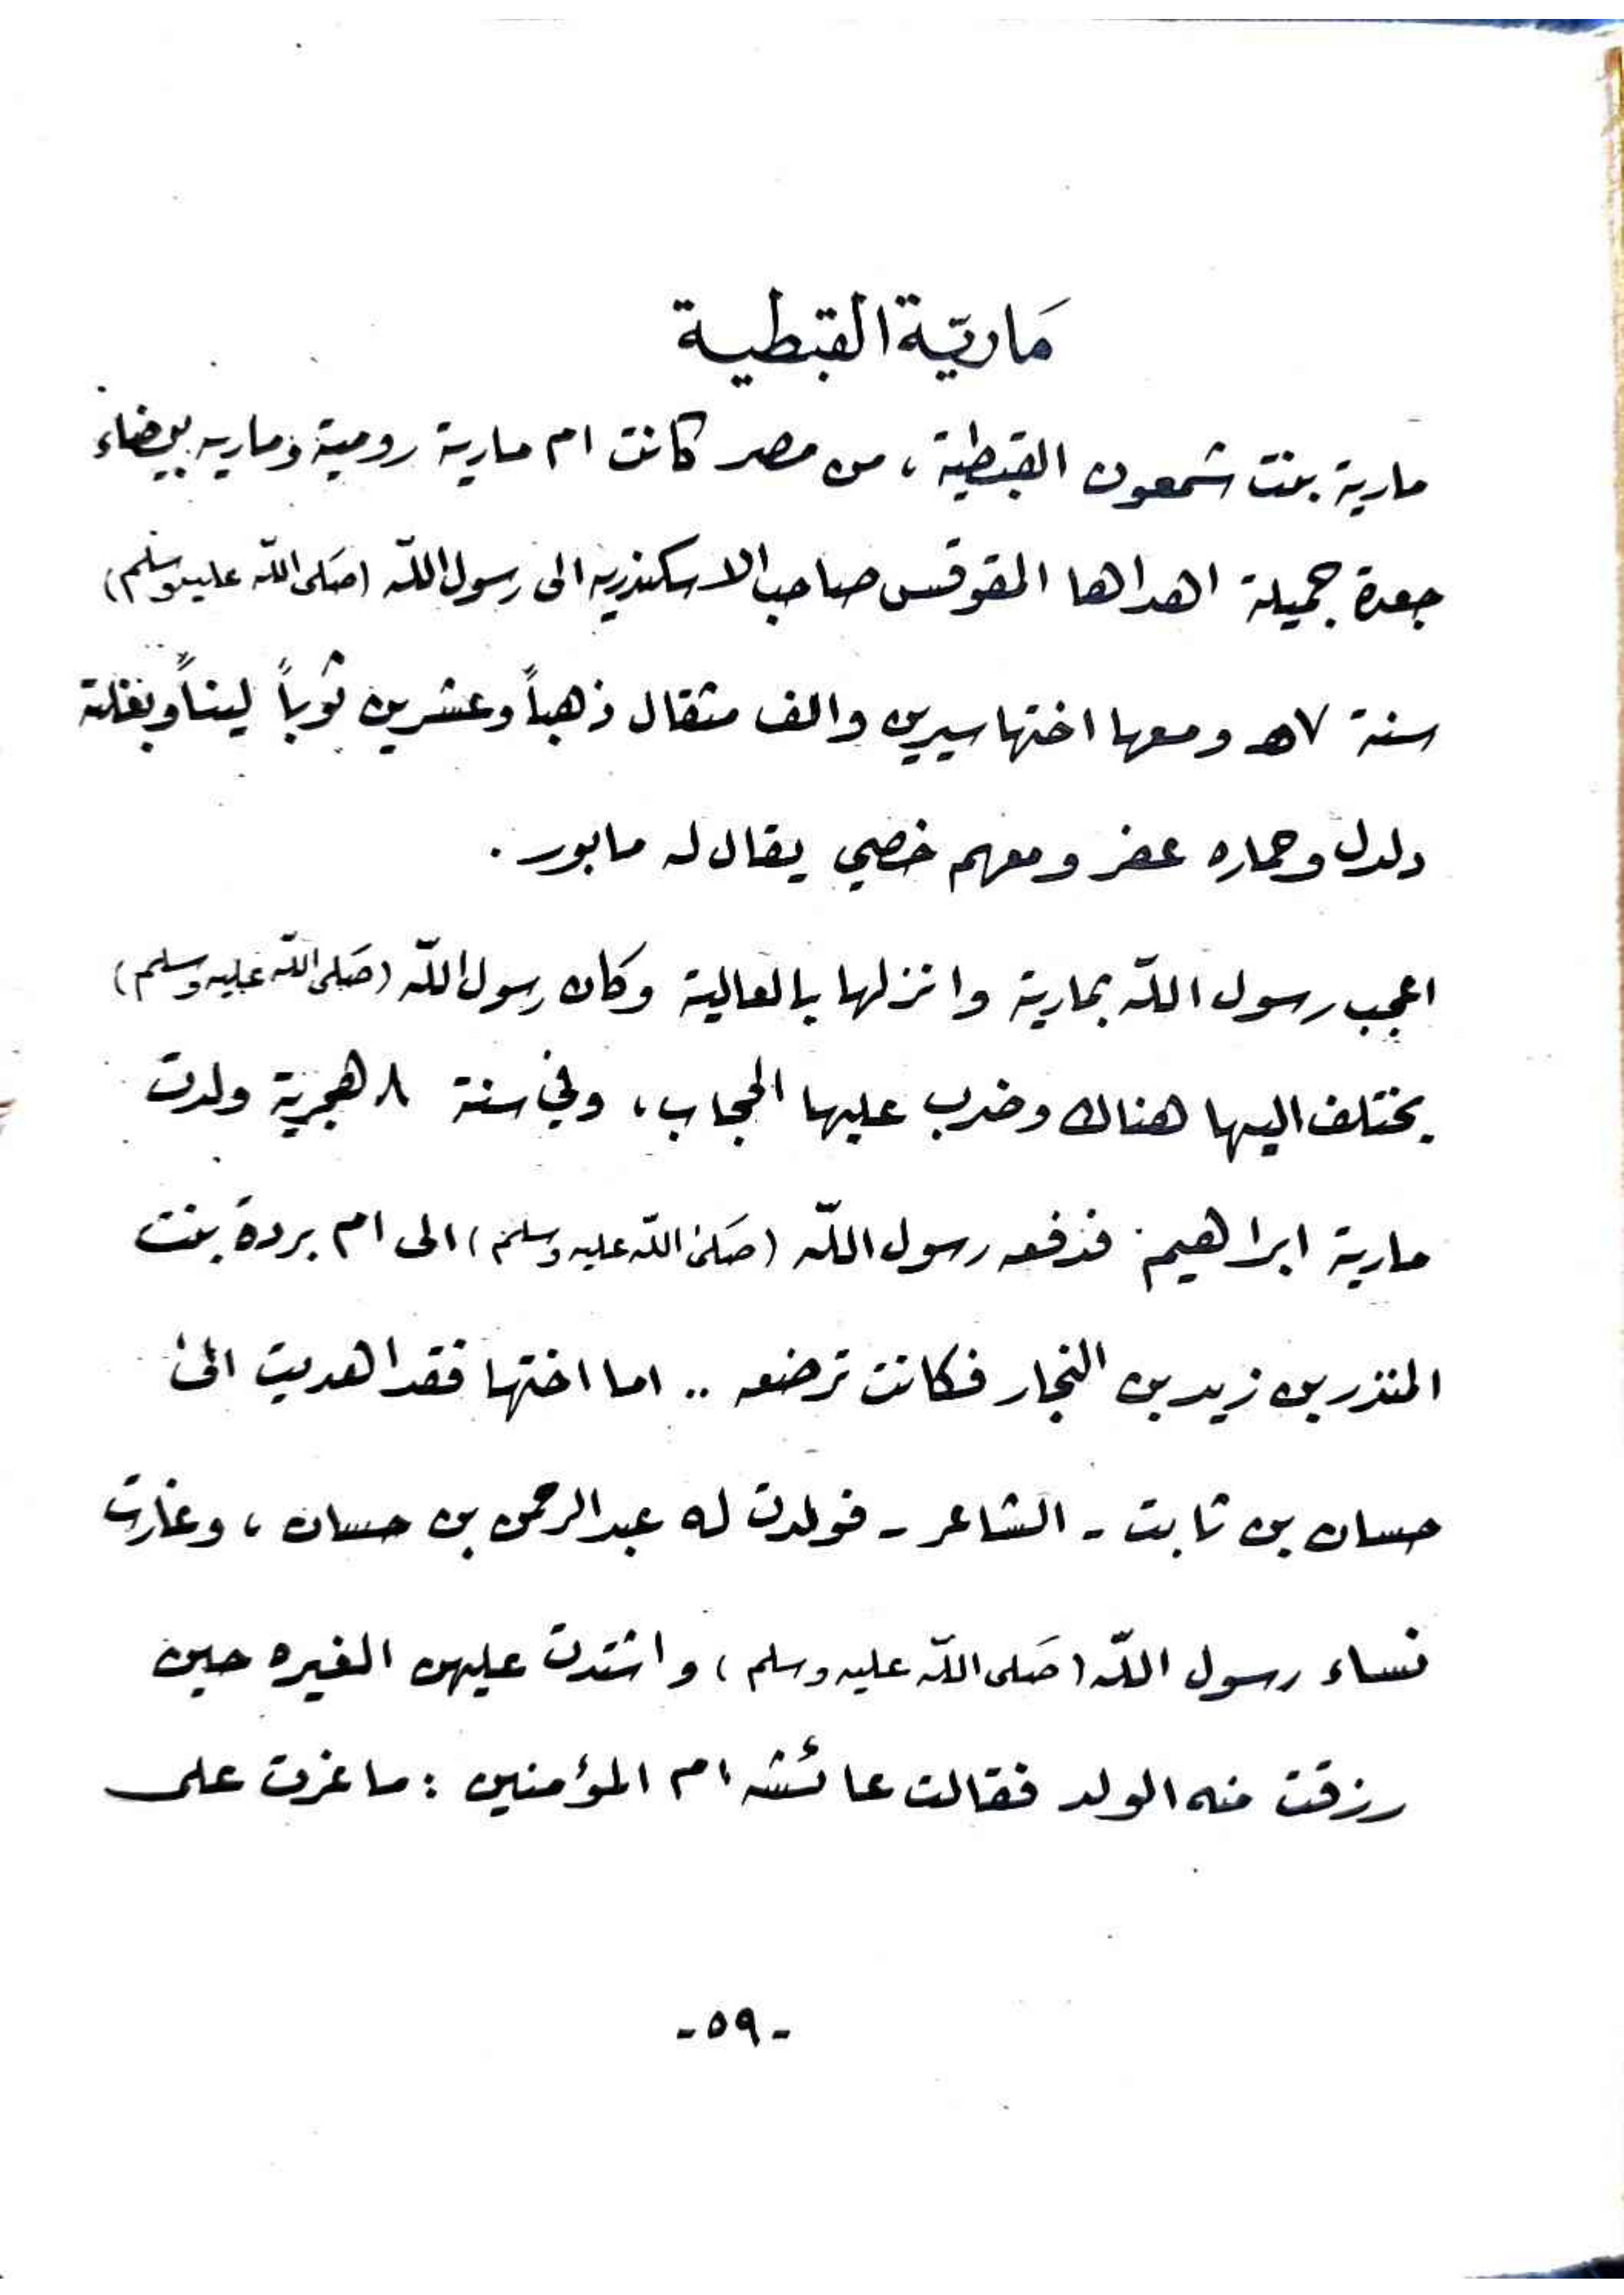 مَاريّة القبطية
مارية بنت شمعون القبطية، من مصر كانت ام مارية رومية وماريه بيضاء
جعدة جميلة اهداها المقوقس صاحب الاسكندريه الى رسول اللّه (صَلى اللّه عليه وسلم)
سنة ٧هـ ومعها اختها سيرين والف مثقال ذهباً وعشرين ثوباً ليناً وبغلته
دلدل وحماره عفر ومعهم خصي يقال له مابور .
اعجب رسول اللّه بمارية وانزلها بالعالية وكان رسول اللّه (صَلى اللّه عليه وسلم)
يختلف اليها هناك وضرب عليها الحجاب، وفي سنة ٨ هجرية ولدت
مارية ابراهيم فدفعه رسول اللّه (صَلى اللّه عليه وسلم) الى ام بردة بنت
المنذر بن زيد بن النجار فكانت ترضعه .. اما اختها فقد اهديت الى
حسان بن ثابت - الشاعر - فولدت له عبد الرحمن بن حسان ، وغارت
نساء رسول اللّه (صَلى اللّه عليه وسلم) واشتدت عليهن الغيره حين
رزقت منه الولد فقالت عائشه ام المؤمنين : ما غرت على
-٥٩-